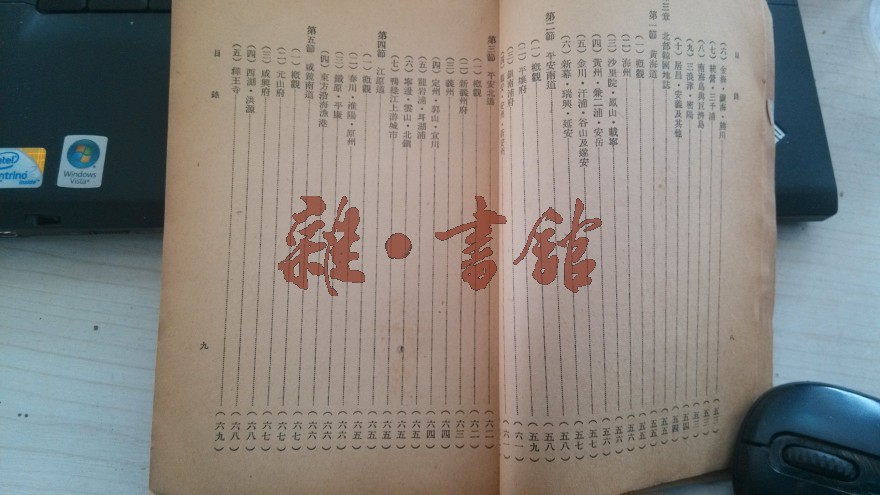 目錄
（六）金海·鎮海·勝川
（七）統營·三千浦
（八）南海島與巨濟島
（九）三浪津·密陽
（十）居昌·安義及其他
第三章 北部韓國地誌
第一節 黃海道
（一）概觀
（二）海州
（三）沙里院·鳳山·載寧
（四）黃州·兼二浦·安岳
（五）金川·汗浦·谷山及遂安
（六）新幕·瑞興·延安
第二節 平安南道
（一）概觀
（二）平壤府
（三）鎮南浦府
（五三）
（五三）
（五三）
（五四）
（五四）
（五五）
（五五）
（五五）
（五六）
（五六）
（五七）
（五七）
（五八）
（五八）
（五九）
（六一）
八
第三節 平安北道
（一）概觀
（二）新義州府
（三）義州
（四）定州·郭山·宣川
（五）龍岩浦·耳湖浦
（六）寧邊·雲山·北鎮
（七）鴨綠江上游城市
第四節 江原道
（一）概觀
（二）春川·淮陽·原州
（三）鐵原·平康
（四）東方沿海漁港
第五節 咸鏡南道
（一）概觀
（二）元山府
（三）咸興府
（四）西湖·洪源
（五）釋王寺
目錄
（六二）
（六二）
（六三）
（六四）
（六四）
（六五）
（六五）
（六五）
（六五）
（六五）
（六六）
（六六）
（六六）
（六七）
（六七）
（六七）
（六八）
（六九）
九
雜·書館
intel
Centrino
inside
Windows
Vista